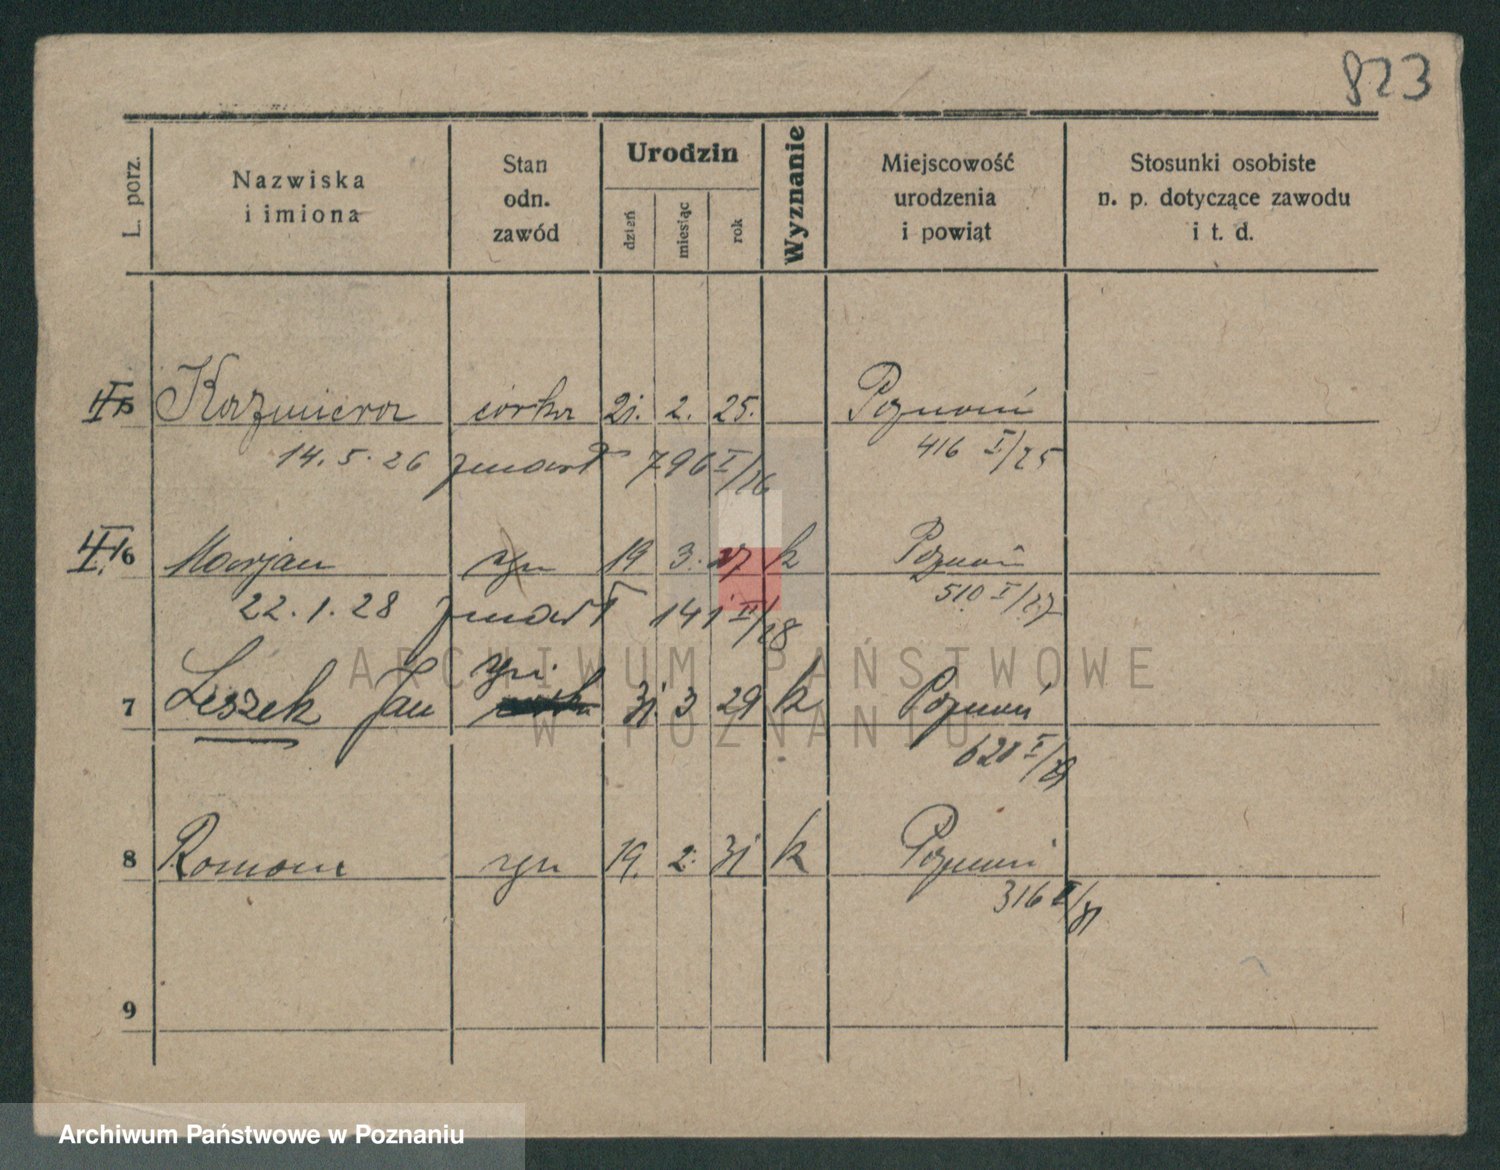 823
L. porz.
Nazwiska
i imiona
Stan
odn.
zawód
Urodzin
dzień
miesiąc
rok
Wyznanie
Miejscowość
urodzenia
i powiąt
Stosunki osobiste
n. p. dotyczące zawodu
i t. d.
5 Kazmiera córka 21. 2. 25. Poznań
14. 5. 26 zmarł 796 I/26 416 I/25
6 Marjan syn 19 3. 27 k Poznań
22. 1. 28 zmarł 141 II/28 510 I/27
ARCHIWUM PAŃSTWOWE
W POZNANIU
syn
7 Leszek Jan 31. 3 29 k Poznań
620 I/29
8 Roman syn 19. 2. 31 k Poznań
316 I/31
9
Archiwum Państwowe w Poznaniu